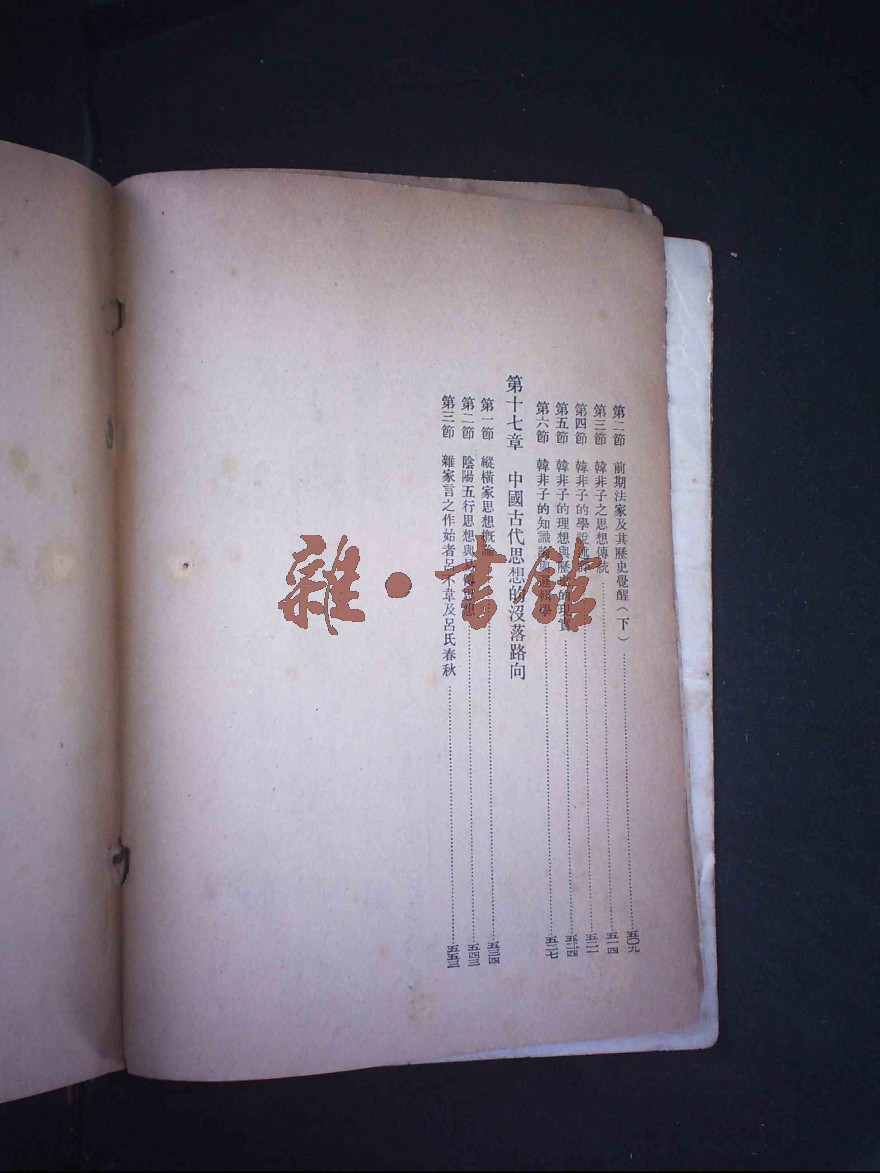 第二節 前期法家及其歷史覺醒（下）……五〇九
第三節 韓非子之思想傳統……五一四
第四節 韓非子的學說……五二一
第五節 韓非子的理想與歷史的現實……五二四
第六節 韓非子的知識論與邏輯學……五二七
第十七章 中國古代思想的沒落路向
第一節 縱橫家思想概論……五三四
第二節 陰陽五行思想與易傳思想……五四三
第三節 雜家言之作始者呂不韋及呂氏春秋……五五三
雜·書館